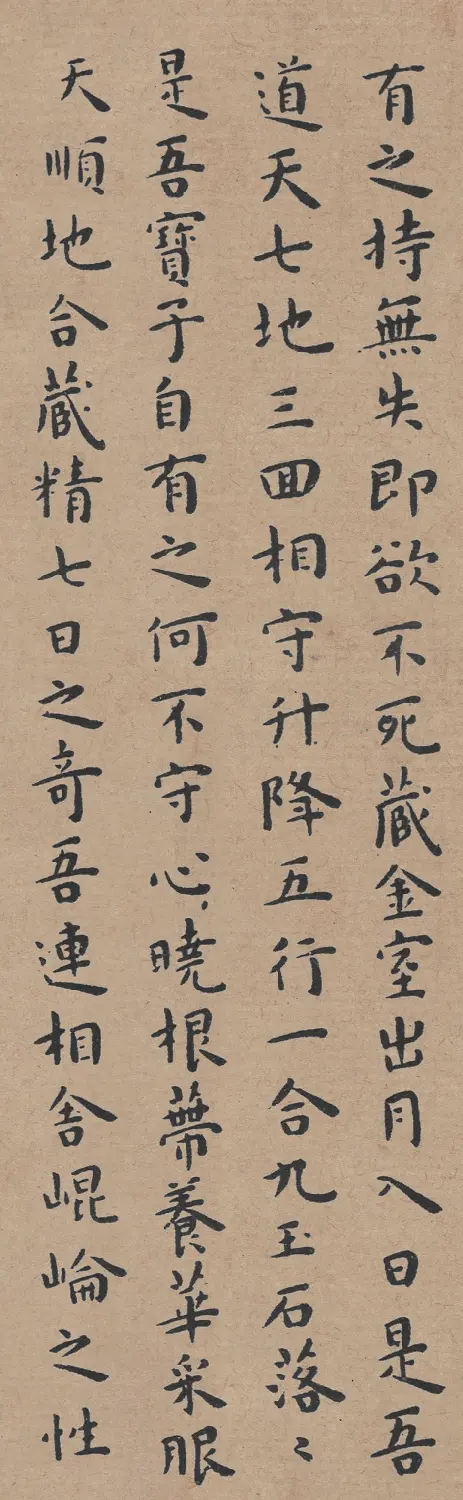 有之持無失即欲不死藏金室出月入日是吾
道天七地三回相守升降五行一合九玉石落〻
是吾寶子自有之何不守心曉根蔕養華采服
天順地合藏精七日之奇吾連相舎崐崘之性